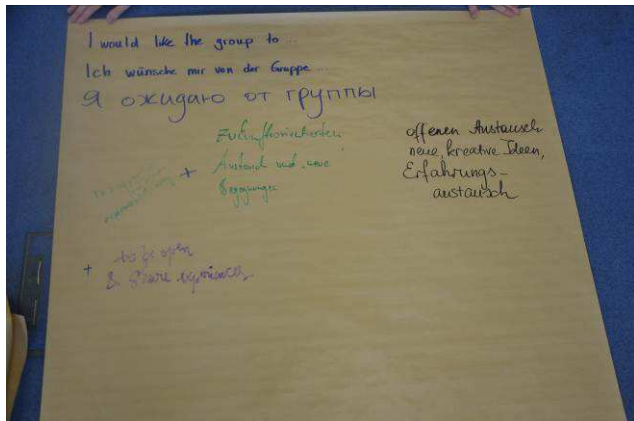 I would like the group to ...
Ich wünsche mir von der Gruppe ...
Я ожидаю от группы
Zukunftsorientierten
Austausch und "neue"
Begegnungen
+
offenen Austausch
neue, kreative Ideen,
Erfahrungs-
austausch
+
to be open
& share experiences